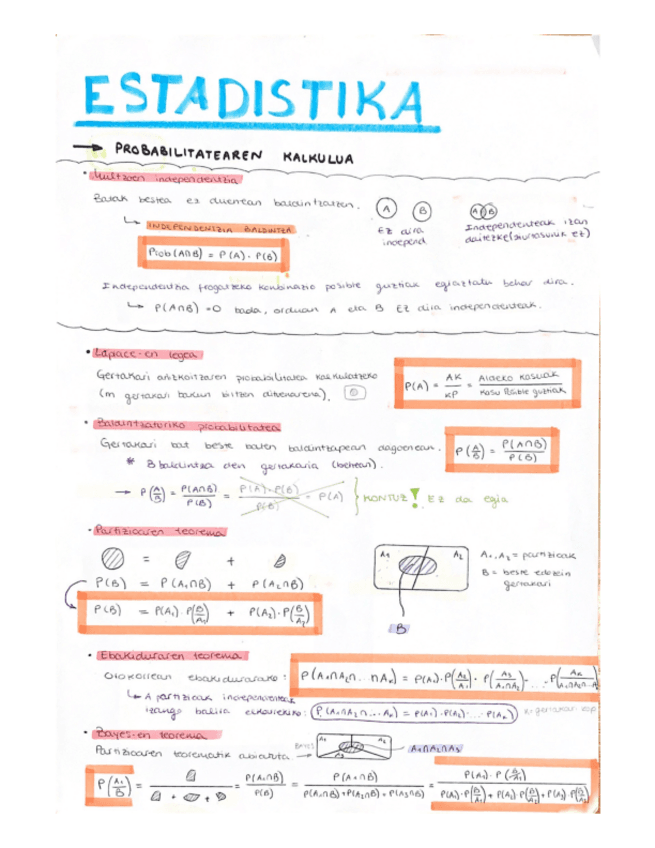 ESTADISTIKA
→ PROBABILITATEAREN KALKULUA
• Multzoen independentzia
Batak bestea ez duenean baldintzatzen.
A B A B
↳ INDEPENDENTZIA BALDINTZA
Ez dira independ.
Independenteak izan daitezke (ziurtasunik ez)
Prob(A∩B) = P(A) · P(B)
Independentzia frogatzeko konbinazio posible guztiak egiaztatu behar dira.
↳ P(A∩B) = 0 bada, orduan A eta B EZ dira independenteak.
• Laplace-en legea
Gertakari arazkoitzaren probabilitatea kalkulatzeko
(m gertakari bakun biltzen dituenarena).
P(A) = AK / KP = Aldeko kasuak / Kasu Posible guztiak
• Baldintzatutako probabilitatea
Gertakari bat beste baten baldintzapean dagoenean.
P(A/B) = P(A∩B) / P(B)
* B baldintza den gertakaria (behean).
→ P(A/B) = P(A∩B) / P(B) = P(A)·P(B) / P(B) = P(A) } KONTUZ! EZ da egia
• Partizioaren teorema
= +
P(B) = P(A₁∩B) + P(A₂∩B)
P(B) = P(A₁)·P(B/A₁) + P(A₂)·P(B/A₂)
A₁ A₂
B
A₁, A₂ = partizioak
B = beste edozein gertakari
• Ebakiduraren teorema
Orokorrean ebakidurarako:
P(A₁∩A₂∩...∩Aₙ) = P(A₁)·P(A₂/A₁)·P(A₃/A₁∩A₂)·...·P(Aₙ/A₁∩A₂∩...∩A
↳ A partizioak independenteak
izango balira elkarrekiko: P(A₁∩A₂∩...Aₙ) = P(A₁)·P(A₂)·...·P(Aₙ)
• Bayes-en teorema
Partizioaren teorematik abiatuta →
A₁ A₂ A₃
A₁∩A₂∩A₃
P(A₁/B) = / + + = P(A₁∩B) / P(B) = P(A₁∩B) / P(A₁∩B)+P(A₂∩B)+P(A₃∩B) = P(A₁)·P(B/A₁) / P(A₁)·P(B/A₁)+P(A₂)·P(B/A₂)+P(A₃)·P(B/A₃)